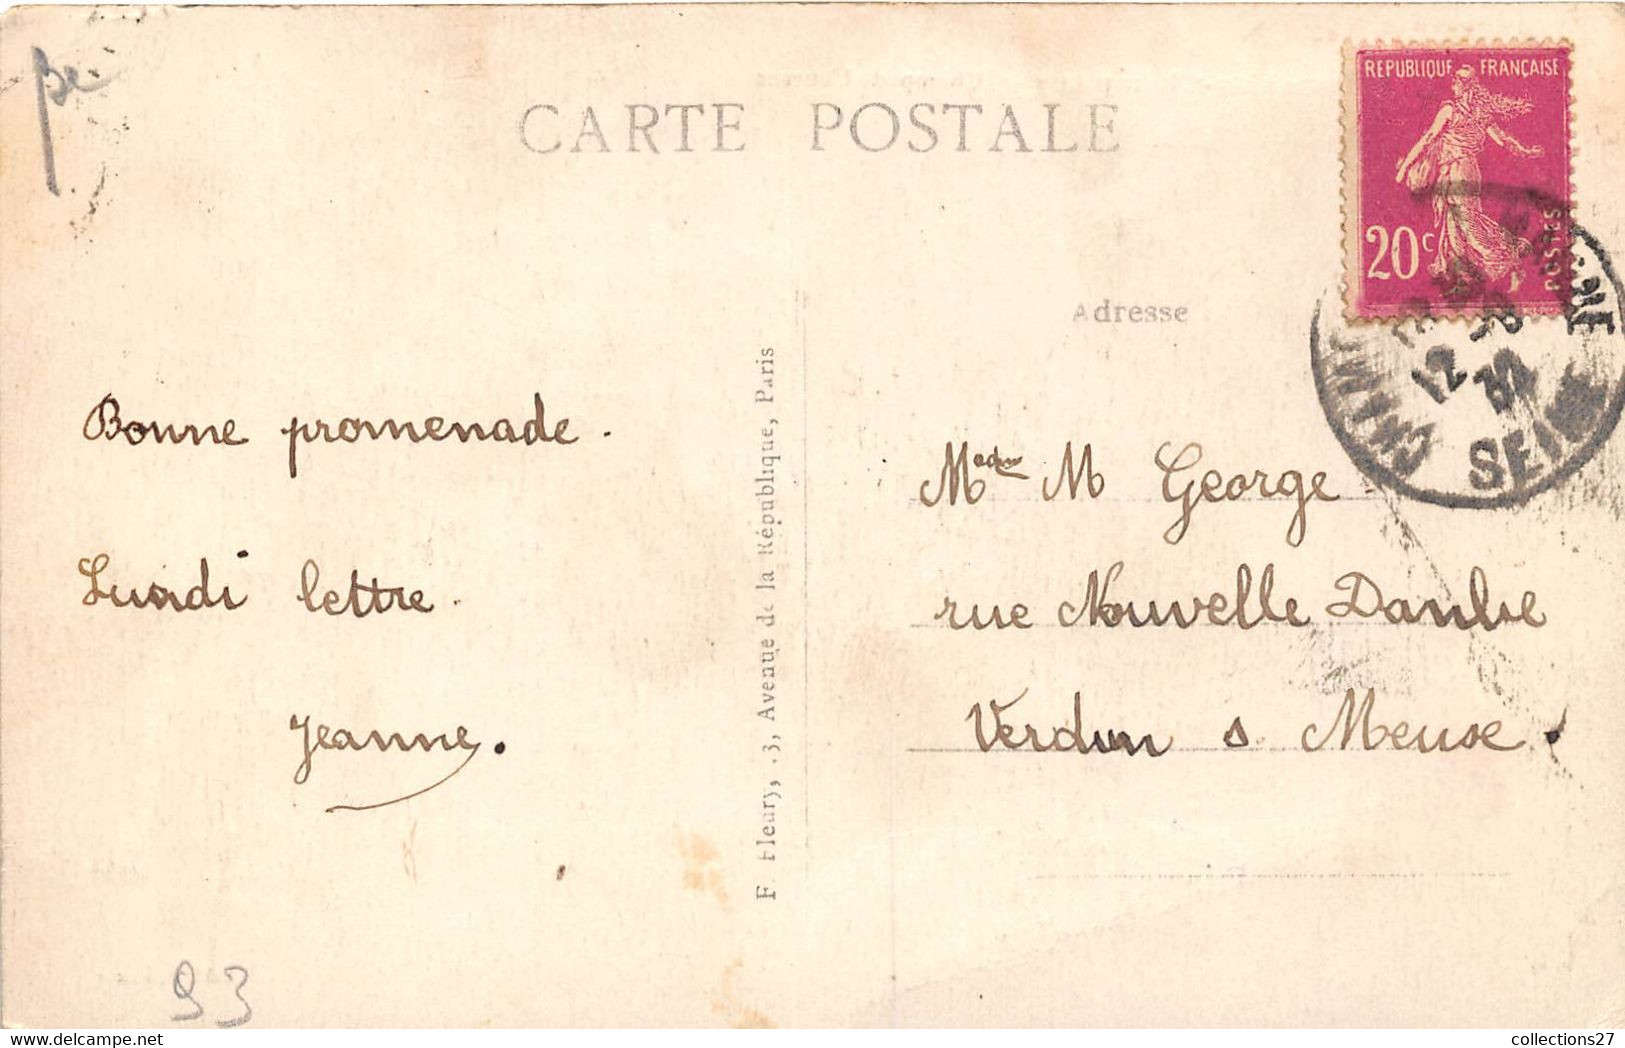 CARTE POSTALE
REPUBLIQUE FRANÇAISE
20c
POSTES
Adresse
12 32
SEINE
Bonne promenade.
Lundi lettre.
Jeanne.
F. Fleury, 3, Avenue de la République, Paris
Madme M George
rue Nouvelle Danlve
Verdun s Meuse.
93
collections27